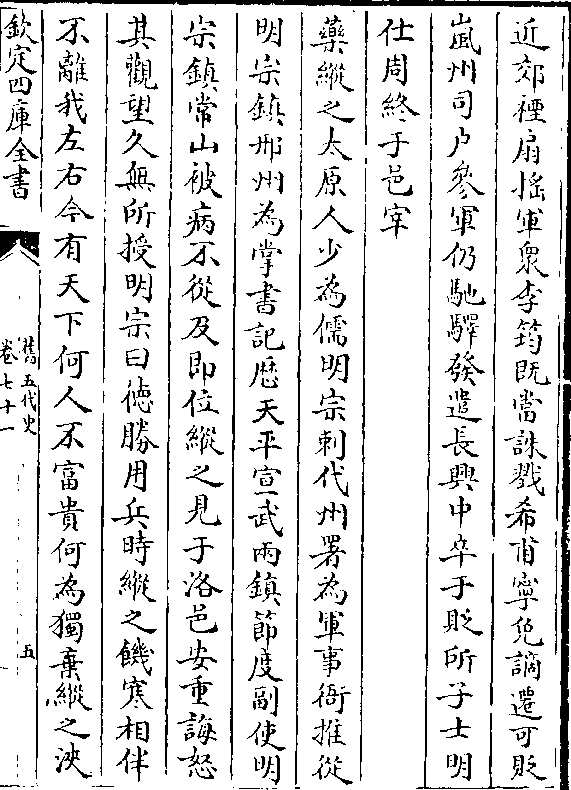 近郊禋扇揺軍衆李筠既當誅戮希甫寧免謫遷可貶
嵐州司户參軍仍馳驛發遣長興中卒于貶所子士明
仕周終于邑宰
藥縱之太原人少為儒明宗刺代州署為軍事衙推從
明宗鎮邢州為掌書記厯天平宣武兩鎮節度副使明
宗鎮常山被病不從及即位縱之見于洛邑安重誨怒
其觀望久無所授明宗曰徳勝用兵時縱之饑寒相伴
不離我左右今有天下何人不富貴何為獨棄縱之浹
欽定四庫全書
舊五代史
卷七十一
五